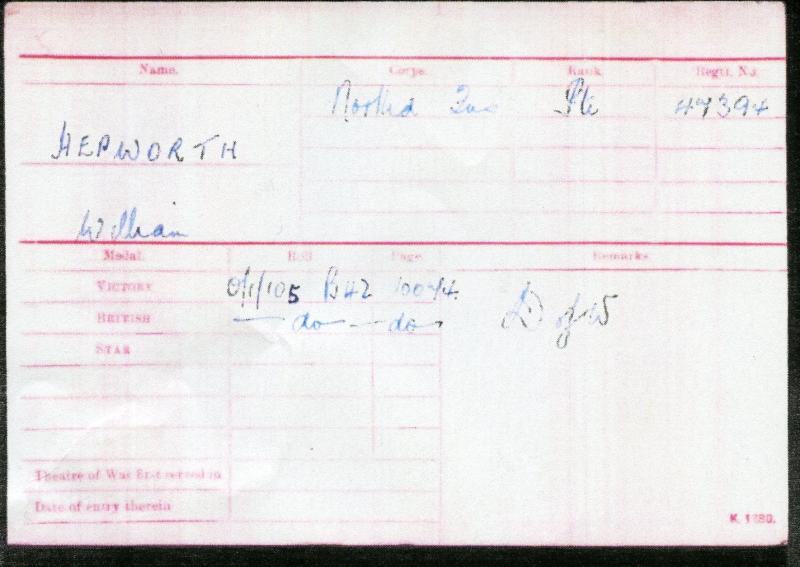 Name. Corps. Rank. Regtl. No.
North'd Fus Pte 47394
HEPWORTH
William
Medal. Roll Page. Remarks
VICTORY O/1/105 B42 10074.
BRITISH — do — do D of W
STAR
Theatre of War first served in
Date of entry therein
K. 1380.